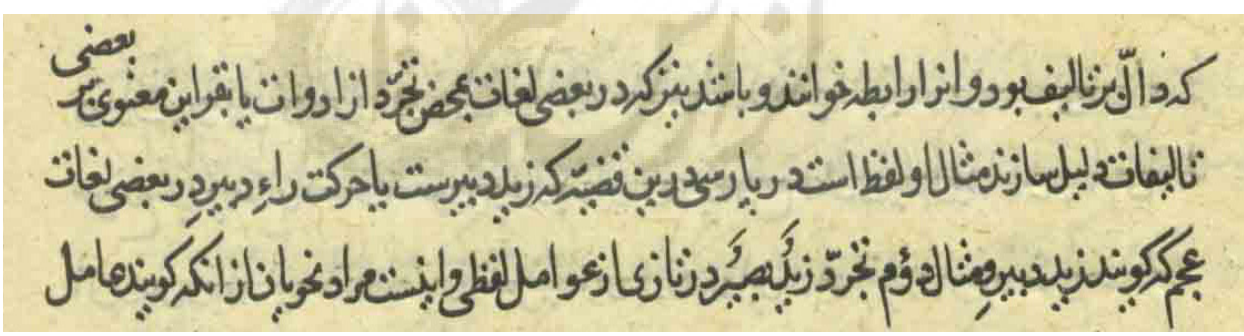 بعضی
که دالّ بر تالیف بود و انرا رابطه خوانند و باشد نیز که در بعضی لغات بمحض تجرّد از ادوات یا بقراین معنوی بر
تالیفات دلیل سازند مثال او لفظ است در پارسی درین قضیّه که زید دبیرست یا حرکت راءِ دبیر در بعضی لغات
عجم که کویند زید دبیرِ و مثال دوُم تجرّد زیدٌ بصیرٌ در تازی از عوامل لفظی و اینست مراد نحویان از انکه کویند عامل